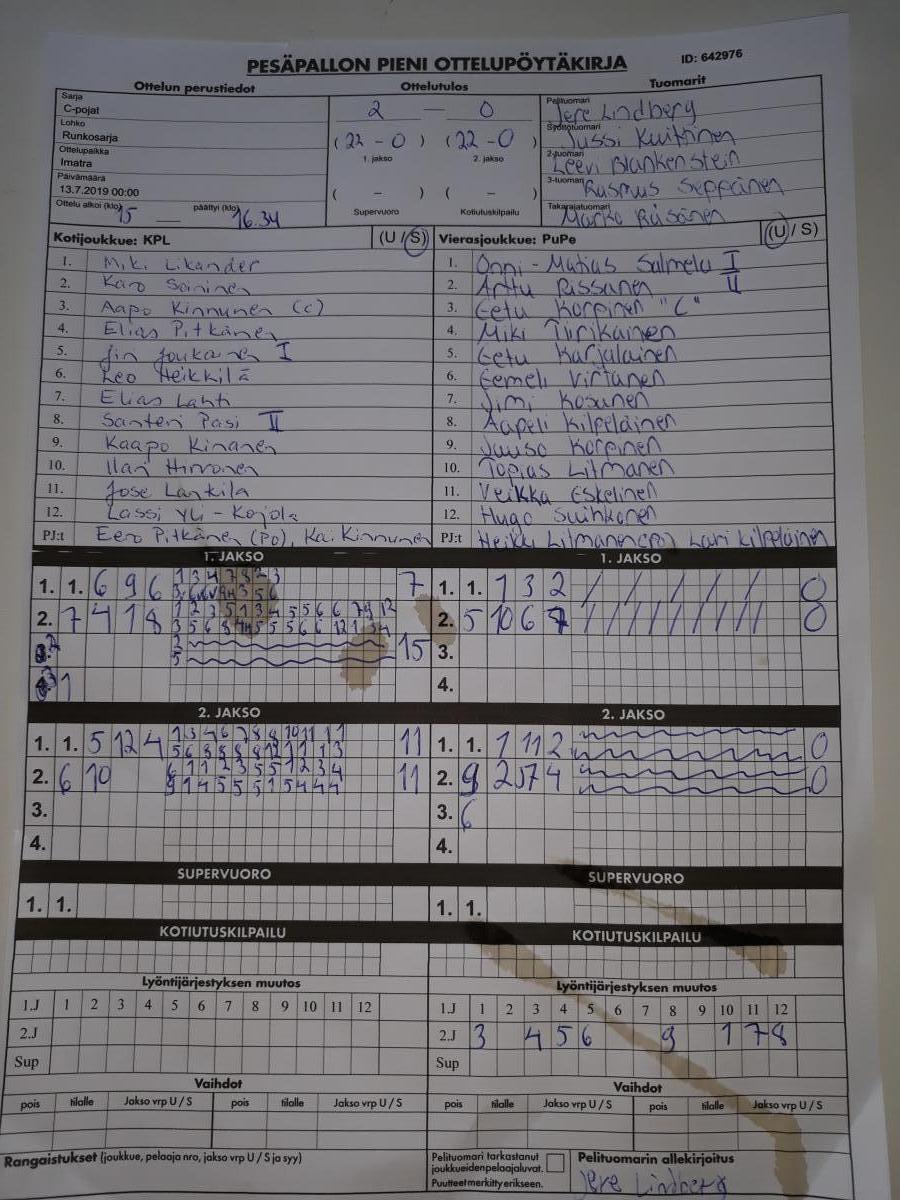 PESÄPALLON PIENI OTTELUPÖYTÄKIRJA
ID: 642976
Ottelun perustiedot
Sarja
C-pojat
Lohko
Runkosarja
Ottelupaikka
Imatra
Päivämäärä
13.7.2019 00:00
Ottelu alkoi (klo) 15 päättyi (klo) 16.34
Ottelutulos
2 — 0
(22 - 0) (22 - 0)
1. jakso 2. jakso
( - ) ( - )
Supervuoro Kotiutuskilpailu
Tuomarit
Pelituomari Jere Lindberg
Syöttötuomari Jussi Kuittinen
2-tuomari Leevi Blankenstein
3-tuomari Rasmus Seppänen
Takarajatuomari Marko Räsänen
Kotijoukkue: KPL (U / S)
1. Miki Likander
2. Karo Soininen
3. Aapo Kinnunen (c)
4. Elias Pitkänen
5. Jin Joukainen I
6. Leo Heikkilä
7. Elias Lahti
8. Santeri Pasi II
9. Kaapo Kinanen
10. Ilari Hirvonen
11. Jose Lankila
12. Lassi Yli-Kojola
PJ:t Eero Pitkänen (PO), Kai Kinnunen
Vierasjoukkue: PuPe (U / S)
1. Onni-Matias Salmela I
2. Arttu Rissanen II
3. Eetu Korpinen "C"
4. Miki Tiirikainen
5. Eetu Karjalainen
6. Eemeli Virtanen
7. Jimi Kosunen
8. Aapeli Kilpeläinen
9. Juuso Korpinen
10. Topias Litmanen
11. Veikka Eskelinen
12. Hugo Suihkonen
PJ:t Heikki Litmanen(PJ) Lari Kilpeläinen
1. JAKSO
1. 1. 6 9 6 7
2. 7 4 1 8
15
1
1. JAKSO
1. 1. 1 3 2 / / / / / / / / 0
2. 5 10 6 / / / / / / / / 0
3.
4.
2. JAKSO
1. 1. 5 12 4 11
2. 6 10 11
3.
4.
2. JAKSO
1. 1. 1 11 2 0
2. 9 2 5 7 4 0
3. 6
4.
SUPERVUORO
1. 1.
SUPERVUORO
1. 1.
KOTIUTUSKILPAILU
KOTIUTUSKILPAILU
Lyöntijärjestyksen muutos
1.J 1 2 3 4 5 6 7 8 9 10 11 12
2.J
Sup
Lyöntijärjestyksen muutos
1.J 1 2 3 4 5 6 7 8 9 10 11 12
2.J 3 4 5 6 9 1 7 8
Sup
Vaihdot
pois tilalle Jakso vrp U / S pois tilalle Jakso vrp U / S
Vaihdot
pois tilalle Jakso vrp U / S pois tilalle Jakso vrp U / S
Rangaistukset (joukkue, pelaaja nro, jakso vrp U / S ja syy)
Pelituomari tarkastanut
joukkueiden pelaajaluvat.
Puutteet merkitty erikseen.
Pelituomarin allekirjoitus
Jere Lindberg